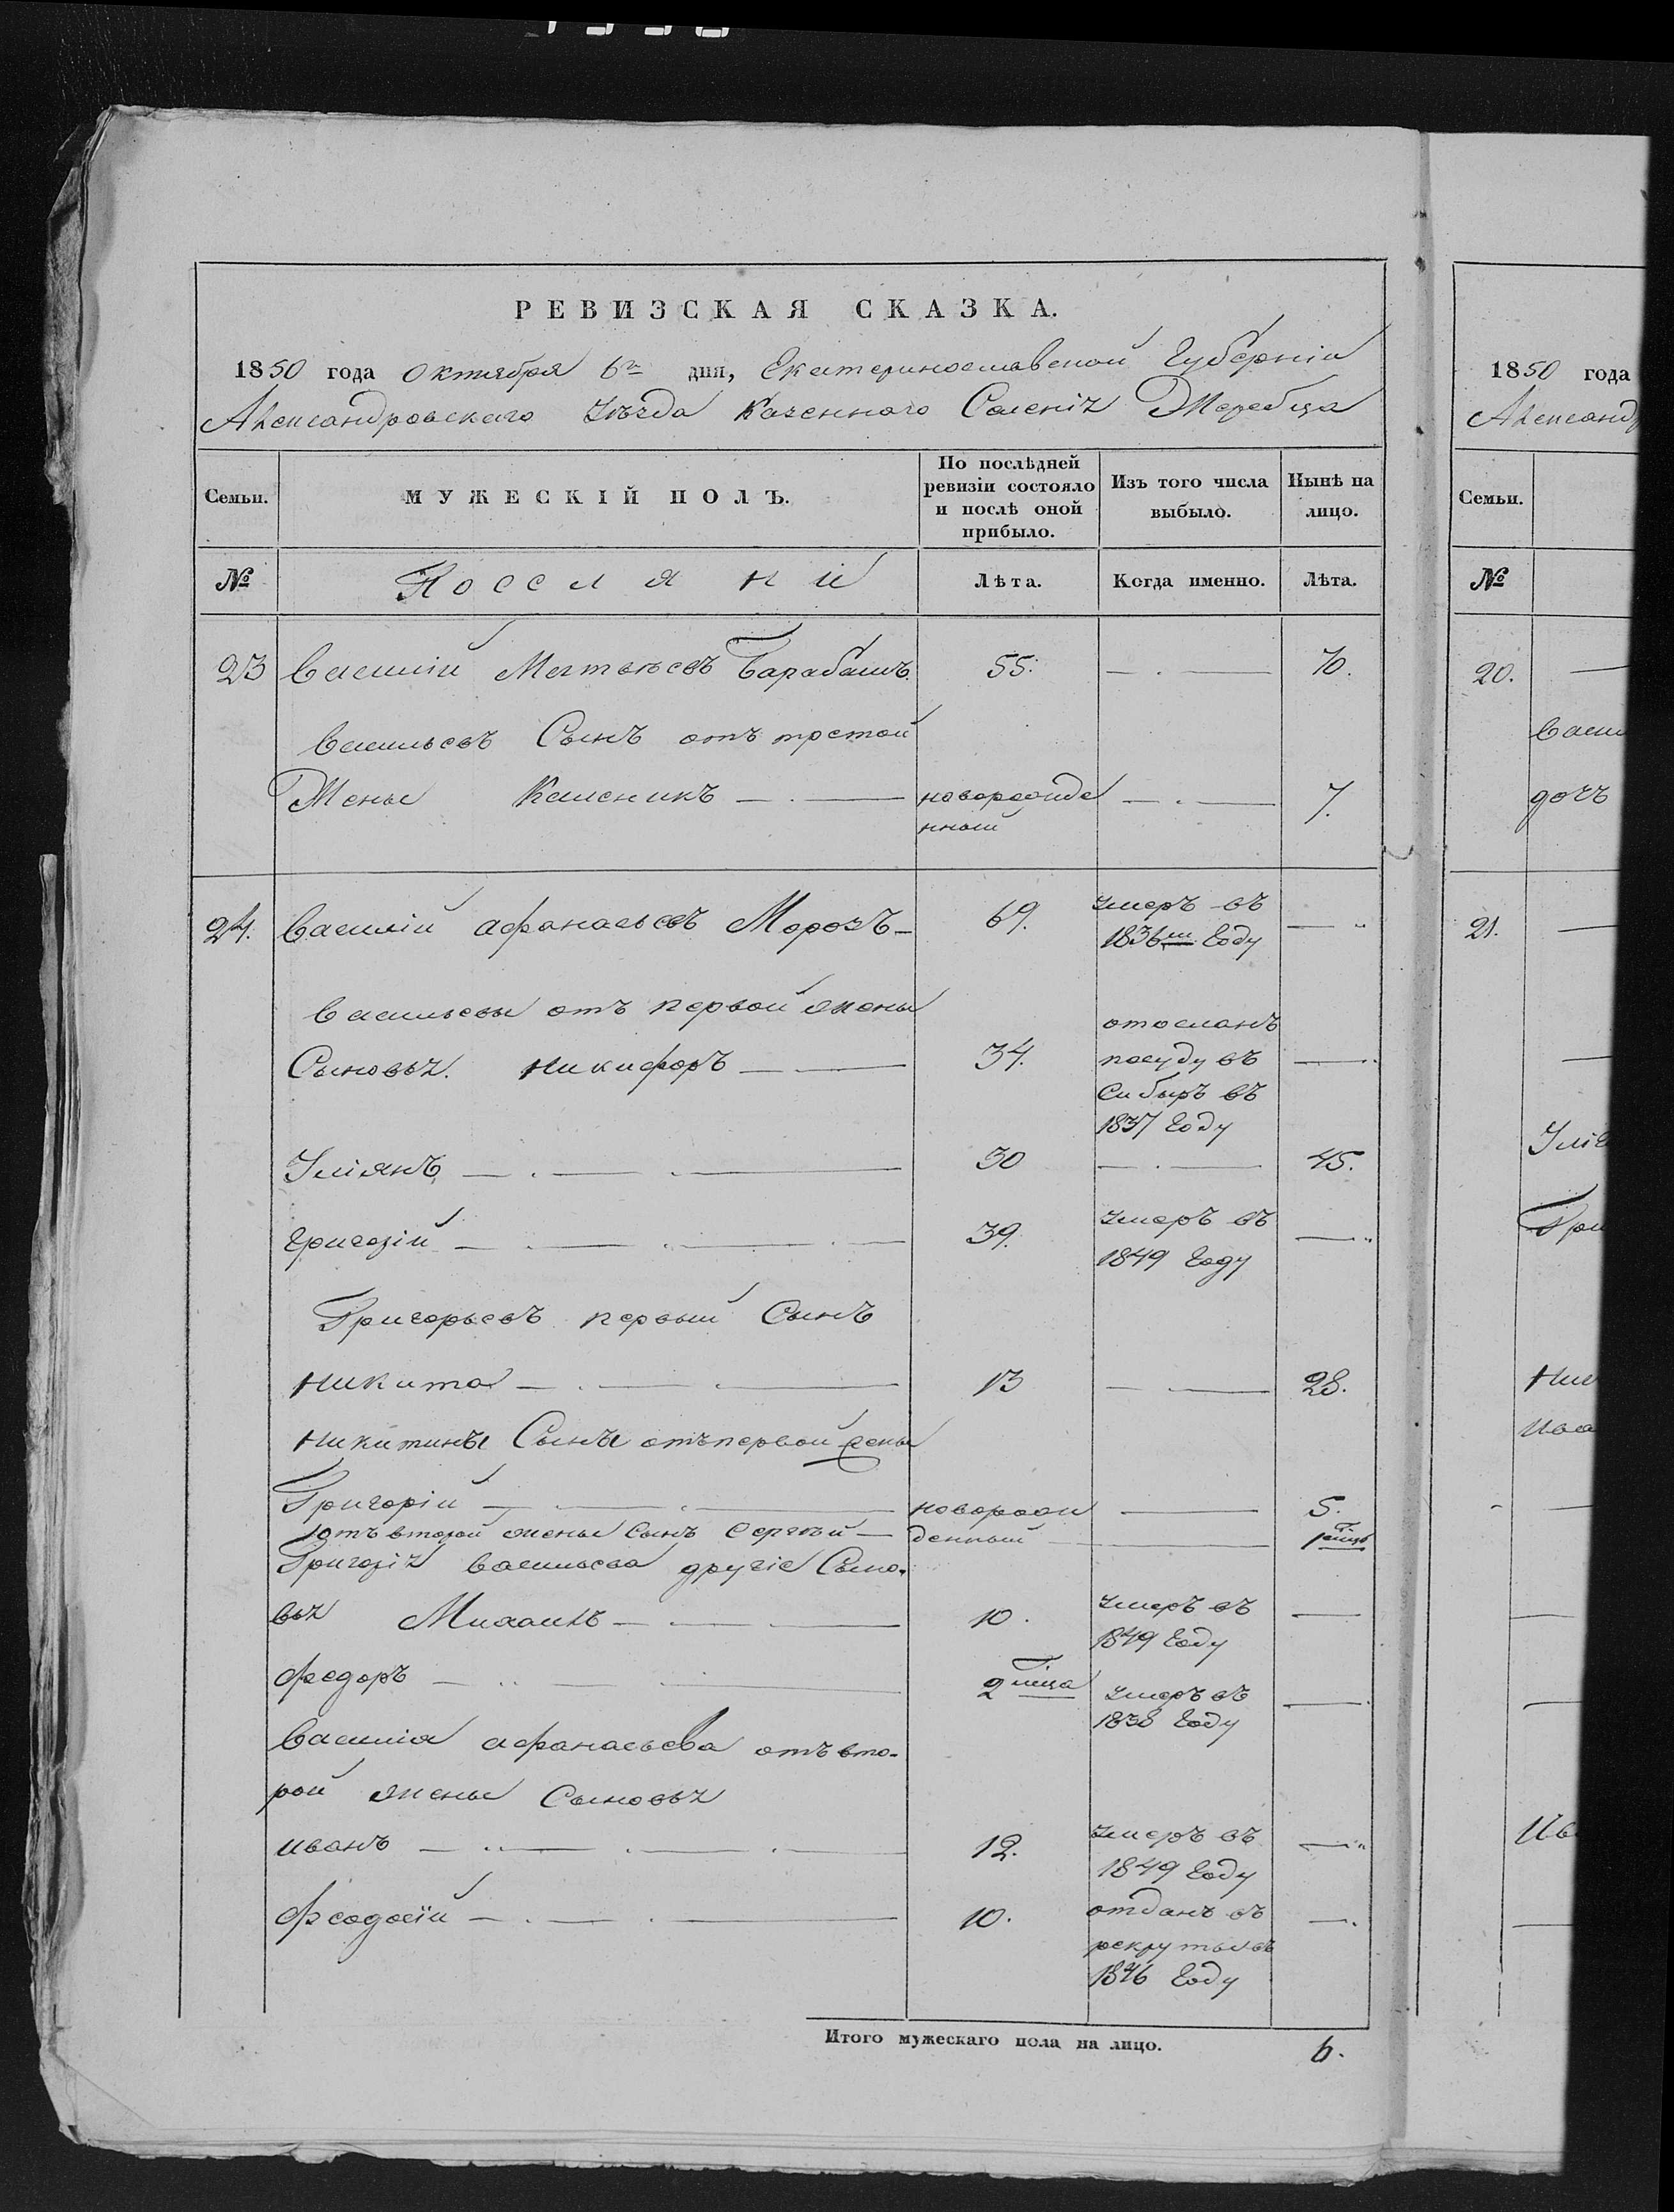 РЕВИЗСКАЯ СКАЗКА.
1850 года Октября 6го дня, Екатеринославской Губерніи
Александровскаго Уѣзда Казенного Селенія Жеребца
Семьи.
МУЖЕСКІЙ ПОЛЪ.
По послѣдней ревизіи состояло и послѣ оной прибыло.
Изъ того числа выбыло.
Нынѣ на лицо.
№
Поселяни
Лѣта.
Когда именно.
Лѣта.
23 Василій Матвѣевъ Барабашъ 55. 70.
Васильевъ Сынъ отъ третой
Жены Каленикъ новорожде 7.
нный
24. Василій Афанасьевъ Морозъ 69. умеръ въ
1836м Году
Васильевы отъ первой жены
Сыновья. Никифоръ 34. отосланъ
посуду въ
Сибыръ въ
1837 Году
Уліянъ 30 45.
Григорій 39. умеръ въ
1849 Году
Григорьевъ первый Сынъ
Никита 13 28.
Никитины Сыны отъ первой жены
Григорій новорож 5.
отъ второй жены Сынъ Сергѣй денный 1 мѣць
Григорія Васильева другіе Сыно-
вья Михаилъ 10. умеръ въ
1849 Году
Федоръ 2 мѣца умеръ въ
1838 Году
Василія Афанасьева отъ вто-
рой жены Сыновья
Иванъ 12. умеръ въ
1849 Году
Феодосій 10. отданъ въ
рекруты въ
1846 Году
Итого мужескаго пола на лицо. 6.
1850 года
Александ
Семьи.
№
20.
Васи
дочъ
21.
Улія
Гри
Ник
Ива
Ив